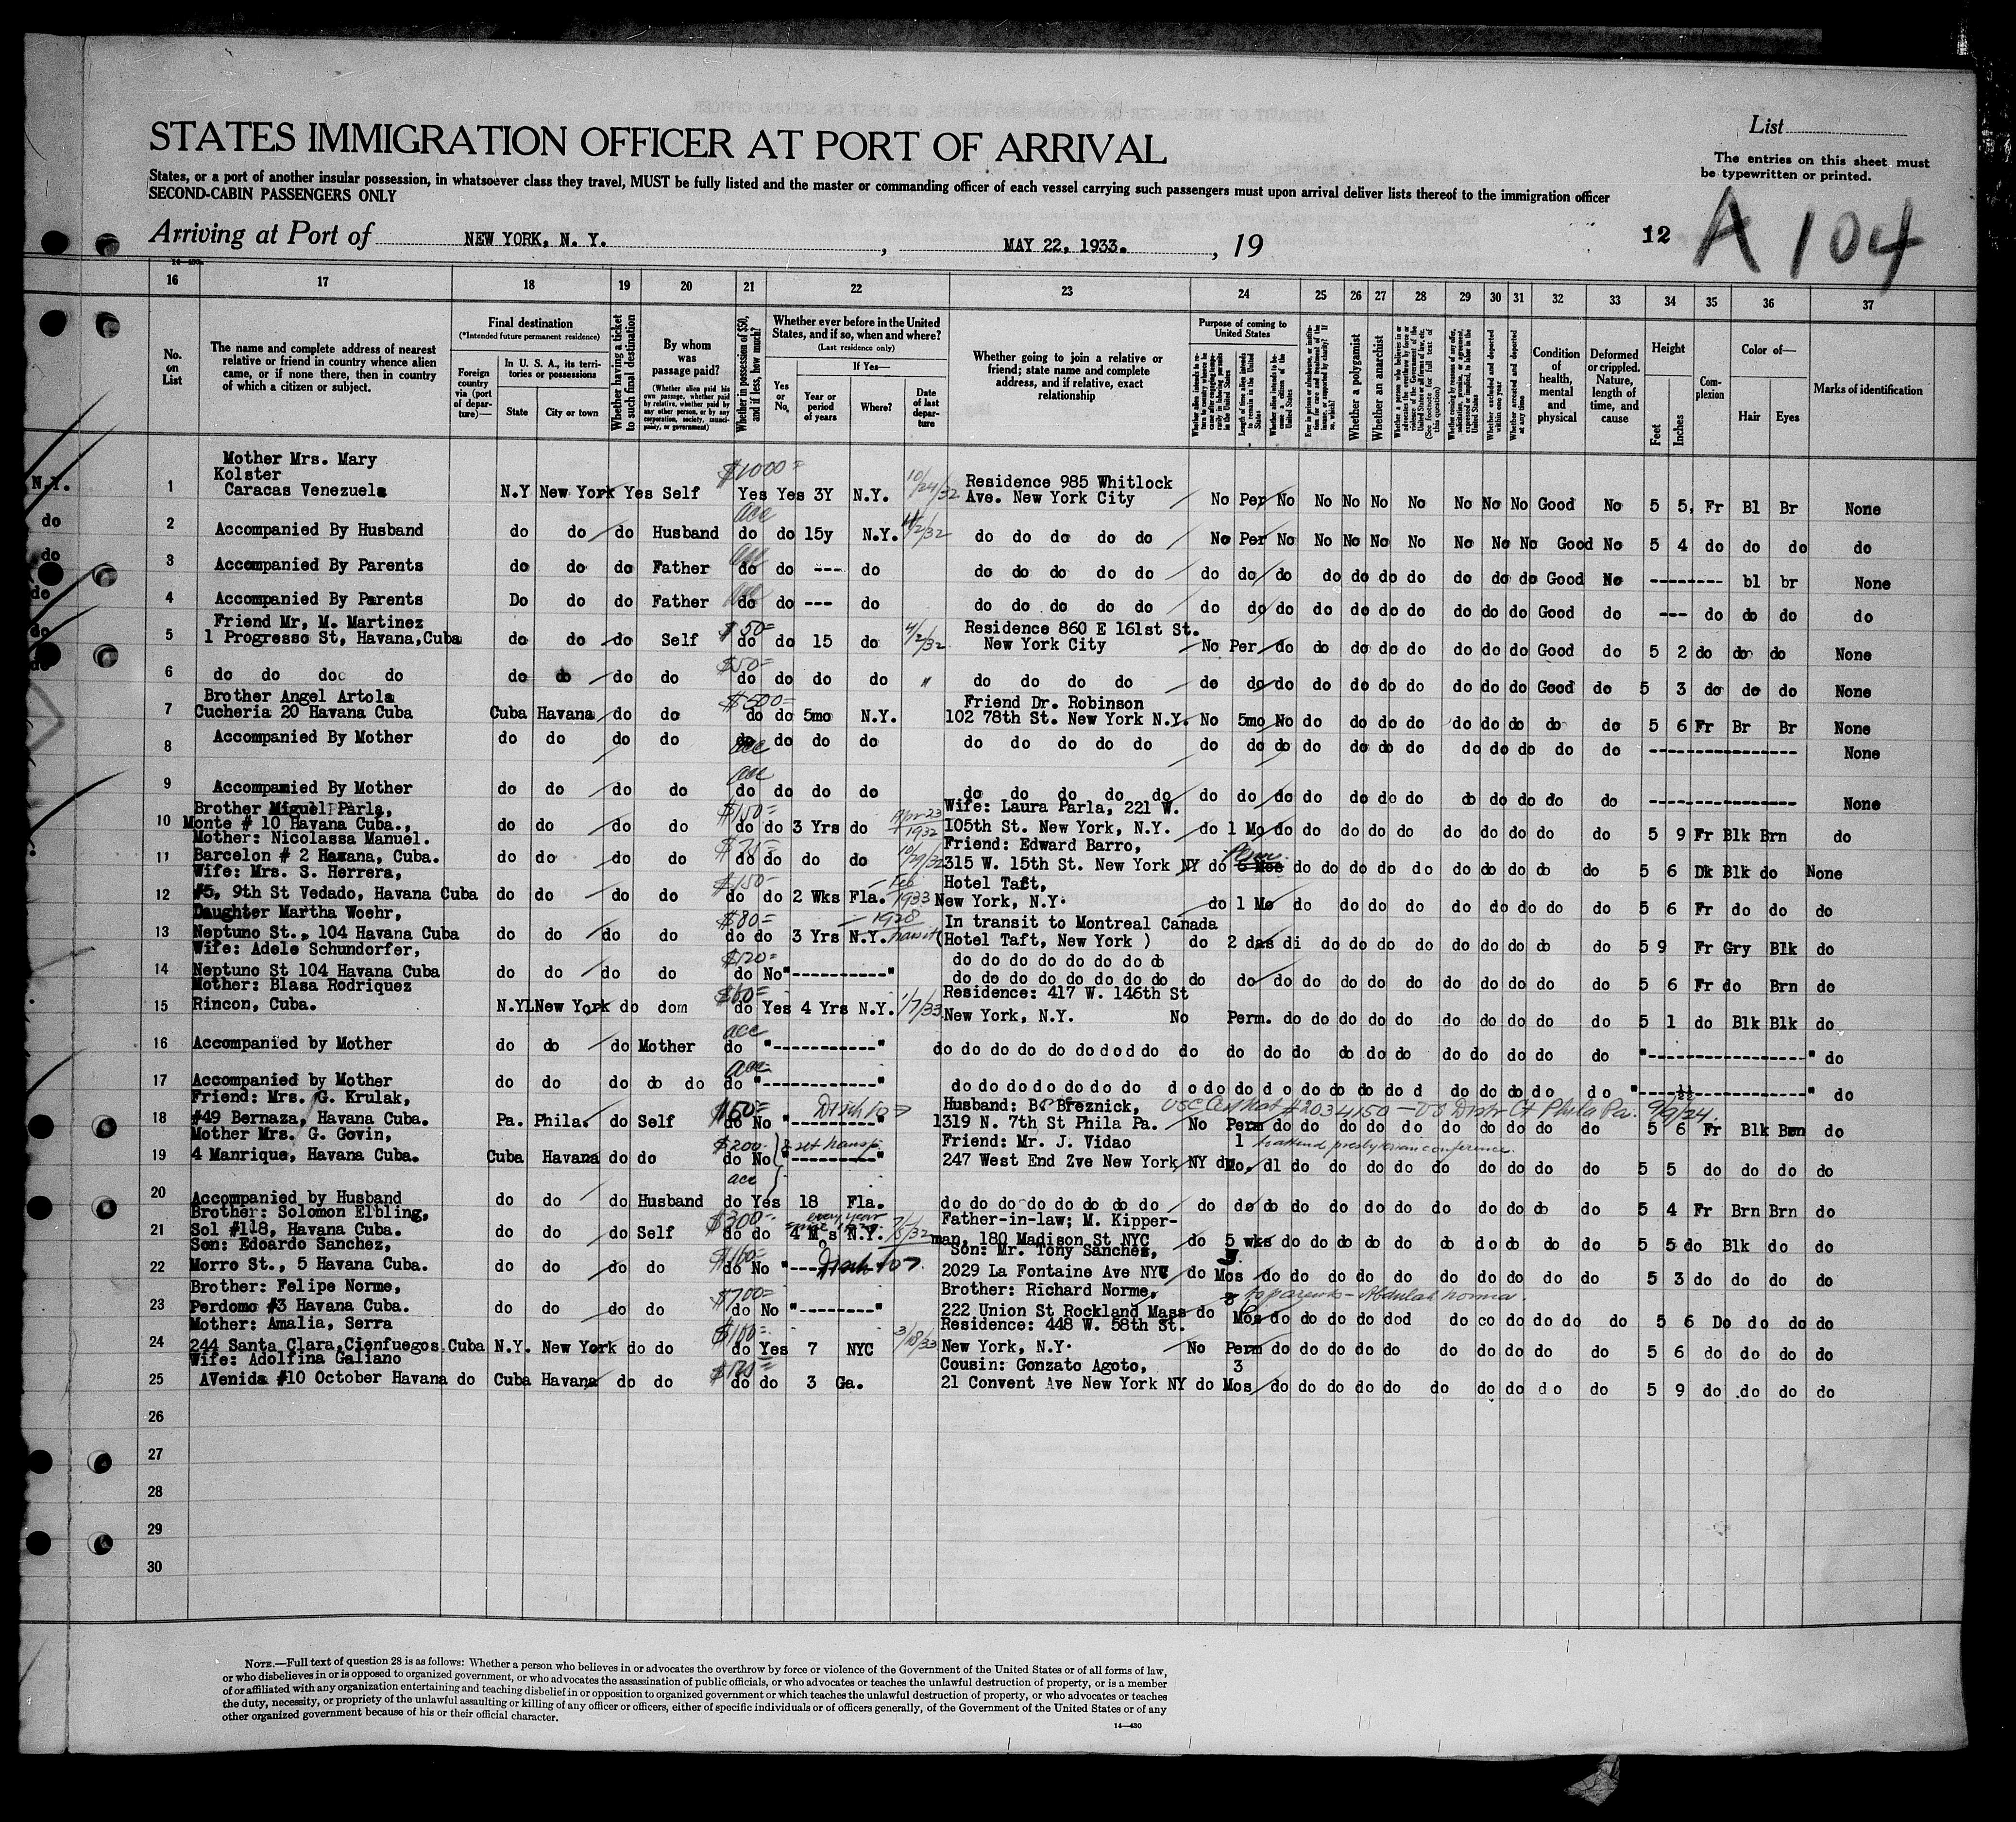 STATES IMMIGRATION OFFICER AT PORT OF ARRIVAL
List
The entries on this sheet must
be typewritten or printed.
States, or a port of another insular possession, in whatsoever class they travel, MUST be fully listed and the master or commanding officer of each vessel carrying such passengers must upon arrival deliver lists thereof to the immigration officer
SECOND-CABIN PASSENGERS ONLY
Arriving at Port of NEW YORK, N. Y., MAY 22, 1933., 19
12 A 104
16 17 18 19 20 21 22 23 24 25 26 27 28 29 30 31 32 33 34 35 36 37
No. on List
The name and complete address of nearest relative or friend in country whence alien came, or if none there, then in country of which a citizen or subject.
Final destination
(*Intended future permanent residence)
Foreign country via (port of departure)—
In U. S. A., its territories or possessions
State
City or town
Whether having a ticket to such final destination
By whom was passage paid?
(Whether alien paid his own passage, whether paid by relative, whether paid by any other person, or by any corporation, society, municipality, or government)
Whether in possession of $50, and if less, how much?
Whether ever before in the United States, and if so, when and where?
(Last residence only)
Yes or No
If Yes—
Year or period of years
Where?
Date of last departure
Whether going to join a relative or friend; state name and complete address, and if relative, exact relationship
Purpose of coming to United States
Length of time alien intends to remain in the United States
Whether alien intends to become a citizen of the United States
Whether a polygamist
Whether an anarchist
Condition of health, mental and physical
Deformed or crippled. Nature, length of time, and cause
Height
Feet
Inches
Complexion
Color of—
Hair
Eyes
Marks of identification
N.Y.
Mother Mrs. Mary
Kolster
1 Caracas Venezuela N.Y New York Yes Self $1000= Yes Yes 3Y N.Y. 10/24/32 Residence 985 Whitlock
Ave. New York City No Per No No No No No No No No Good No 5 5, Fr Bl Br None
do
2 Accompanied By Husband do do do Husband acc do do 15y N.Y. do do do do do No Per No No No No No No No No Good No 5 4 do do do do
do
3 Accompanied By Parents do do do Father do do --- do do do do do do do do do do do do do do do do Good No -------- bl br None
do
4 Accompanied By Parents Do do do Father do do --- do do do do do do do do do do do do do do do do Good do --- do do do do
Friend Mr, M. Martinez
5 1 Progresso St, Havana,Cuba do do do Self $50= do do 15 do 4/2/32 Residence 860 E 161st St.
New York City No Per do do do do do do do do Good do 5 2 do do do None
6 do do do do do do do do $50= do do do do " do do do do do do do do do do do do do do Good do 5 3 do do do None
Brother Angel Artola
7 Cucheria 20 Havana Cuba Cuba Havana do do $500= do do 5mo N.Y. Friend Dr. Robinson
102 78th St. New York N.Y. No 5mo No do do do do do do do do do 5 6 Fr Br Br None
8 Accompanied By Mother do do do do acc do do do do do do do do do do do do do do do do do do do do do ---------------- None
9 Accompanied By Mother do do do do acc do do do do do do do do do do do do do do do do do do do do do ---------------- None
Brother Miguel Parla,
10 Monte # 10 Havana Cuba., do do do do $150= do do 3 Yrs do Apr 23 1932 Wife: Laura Parla, 221 W.
105th St. New York, N.Y. do 1 Mo do do do do do do do do do do 5 9 Fr Blk Brn do
Mother: Nicolassa Manuel.
11 Barcelon # 2 Havana, Cuba. do do do do $75= do do do do 10/29/32 Friend: Edward Barro,
315 W. 15th St. New York NY do 6 Mos do do do do do do do do do do 5 6 Dk Blk do None
Wife: Mrs. S. Herrera,
12 #5, 9th St Vedado, Havana Cuba do do do do $150- do do 2 Wks Fla. Feb 1933 Hotel Taft,
New York, N.Y. do 1 Mo do do do do do do do do do 5 6 Fr do do do
Daughter Martha Woehr,
13 Neptuno St., 104 Havana Cuba do do do do $80= do do 3 Yrs N.Y. 1928 transit In transit to Montreal Canada
(Hotel Taft, New York ) do 2 das di do do do do do do do do do 5 9 Fr Gry Blk do
Wife: Adele Schundorfer,
14 Neptuno St 104 Havana Cuba do do do do $120= do No "----------" do do do do do do do do
do do do do do do do do do do do do do do do do do do do do do 5 6 Fr do Brn do
Mother: Blasa Rodriquez
15 Rincon, Cuba. N.Y. New York do dom $60= do Yes 4 Yrs N.Y. 1/7/33 Residence: 417 W. 146th St
New York, N.Y. No Perm. do do do do do do do do do do 5 1 do Blk Blk do
16 Accompanied by Mother do do do Mother acc do "------------" do do do do do do do do do do do do do do do do do do do do do "----------------" do
17 Accompanied by Mother do do do do do acc do "------------" do do do do do do do do do do do do do do do do do do do do "----------------" do
Friend: Mrs. G. Krulak,
18 #49 Bernaza, Havana Cuba. Pa. Phila. do Self $60= do No "---------" Husband: B. Breznick, USC Cert Nat #2034150 — US Distr Ct Phila Pa. 9/9/24.
1319 N. 7th St Phila Pa. No Perm do do do do do do do do do do 5 6 Fr Blk Brn do
Mother Mrs. G. Govin,
19 4 Manrique, Havana Cuba. Cuba Havana do do $200. do No "----------" Friend: Mr. J. Vidao 1 to attend presbyterian conference.
247 West End Zve New York NY do Mo. dl do do do do do do do do do do 5 5 do do do do
20 Accompanied by Husband do do do Husband acc do Yes 18 Fla. do do do do do do do do do do do do do do do do do do do do 5 4 Fr Brn Brn do
Brother: Solomon Elbling,
21 Sol #118, Havana Cuba. do do do Self $300-. do do 4 M's N.Y. every year Father-in-law; M. Kipper-
man, 180 Madison St NYC do 5 wks do do do do do do do do do do 5 5 do Blk do do
Son: Edoardo Sanchez,
22 Morro St., 5 Havana Cuba. do do do do $160= do No Son: Mr. Tony Sanchez,
2029 La Fontaine Ave NYC do Mos do do do do do do do do do do 5 3 do do do do
Brother: Felipe Norme,
23 Perdomo #3 Havana Cuba. do do do do $700= do No "--------" Brother: Richard Norme,
222 Union St Rockland Mass do Mos do do do do dod do co do do do do 5 6 Do do do do
Mother: Amalia, Serra
24 244 Santa Clara,Cienfuegos,Cuba N.Y. New York do do $100= do Yes 7 NYC 3/18/33 Residence: 448 W. 58th St.
New York, N.Y. No Perm do do do do do do do do do do 5 6 do do do do
Wife: Adolfina Galiano
25 AVenida #10 October Havana do Cuba Havana do do do do 3 Ga. Cousin: Gonzato Agoto, 3
21 Convent Ave New York NY do Mos do do do do do do do do do do 5 9 do do do do
26
27
28
29
30
NOTE.—Full text of question 28 is as follows: Whether a person who believes in or advocates the overthrow by force or violence of the Government of the United States or of all forms of law,
or who disbelieves in or is opposed to organized government, or who advocates the assassination of public officials, or who advocates or teaches the unlawful destruction of property, or is a member
of or affiliated with any organization entertaining and teaching disbelief in or opposition to organized government or which teaches the unlawful destruction of property, or who advocates or teaches
the duty, necessity, or propriety of the unlawful assaulting or killing of any officer or officers, either of specific individuals or of officers generally, of the Government of the United States or of any
other organized government because of his or their official character.
14—430